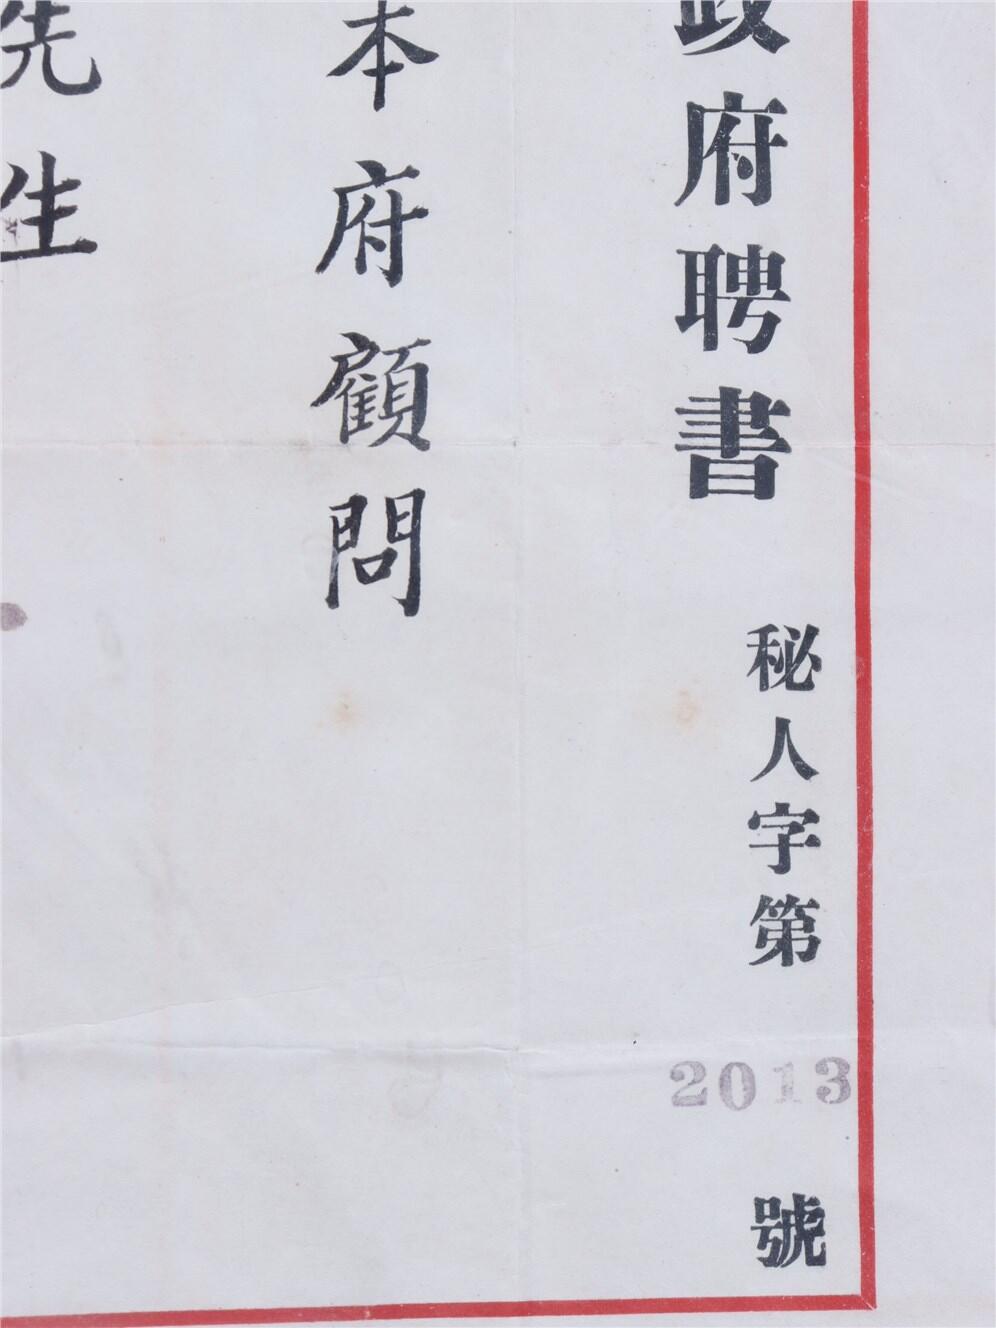 政府聘書
秘人字第2013號
本府顧問
先生